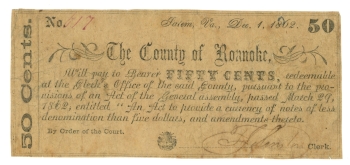 No. 717 Salem, Va., Dec. 1, 1862. 50
50 Cents.
The County of Roanoke,
Will pay to Bearer FIFTY CENTS, redeemable
at the Clerk's Office of the said County, pursuant to the pro-
visions of an Act of the General assembly, passed March 29,
1862, entitled "An Act to provide a currency of notes of less
denomination than five dollars, and amendments thereto.
By Order of the Court.
Clerk.